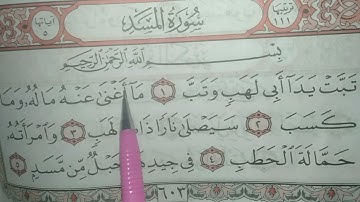 ترتيبها ١١١ سُورَةُ المَسَدِ آياتها ٥
بِسْمِ ٱللَّهِ ٱلرَّحْمَٰنِ ٱلرَّحِيمِ
تَبَّتْ يَدَآ أَبِى لَهَبٍ وَتَبَّ ١ مَآ أَغْنَىٰ عَنْهُ مَالُهُۥ وَمَا
كَسَبَ ٢ سَيَصْلَىٰ نَارًا ذَاتَ لَهَبٍ ٣ وَٱمْرَأَتُهُۥ
حَمَّالَةَ ٱلْحَطَبِ ٤ فِى جِيدِهَا حَبْلٌ مِّن مَّسَدٍۭ ٥
٦٠٣